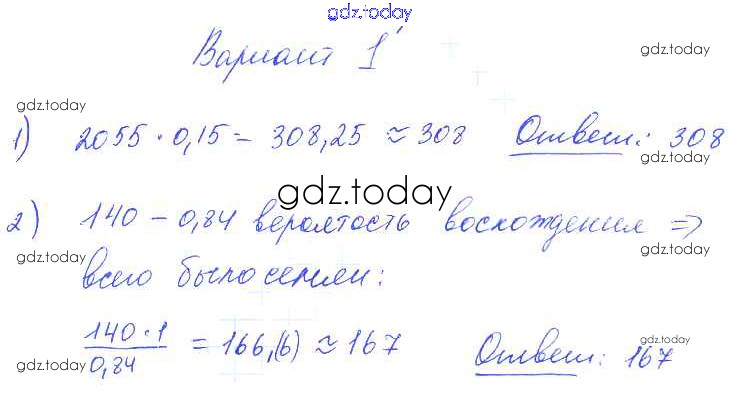 gdz.today
Вариант 1
gdz.today
gdz.today
1) 2055 · 0,15 = 308,25 ≈ 308 Ответ: 308
gdz.today
gdz.today
2) 140 – 0,84 вероятость восхождения ⇒
gdz.today
gdz.today
всего было семян:
140 · 1 / 0,84 = 166,(6) ≈ 167 Ответ: 167
gdz.today
gdz.today